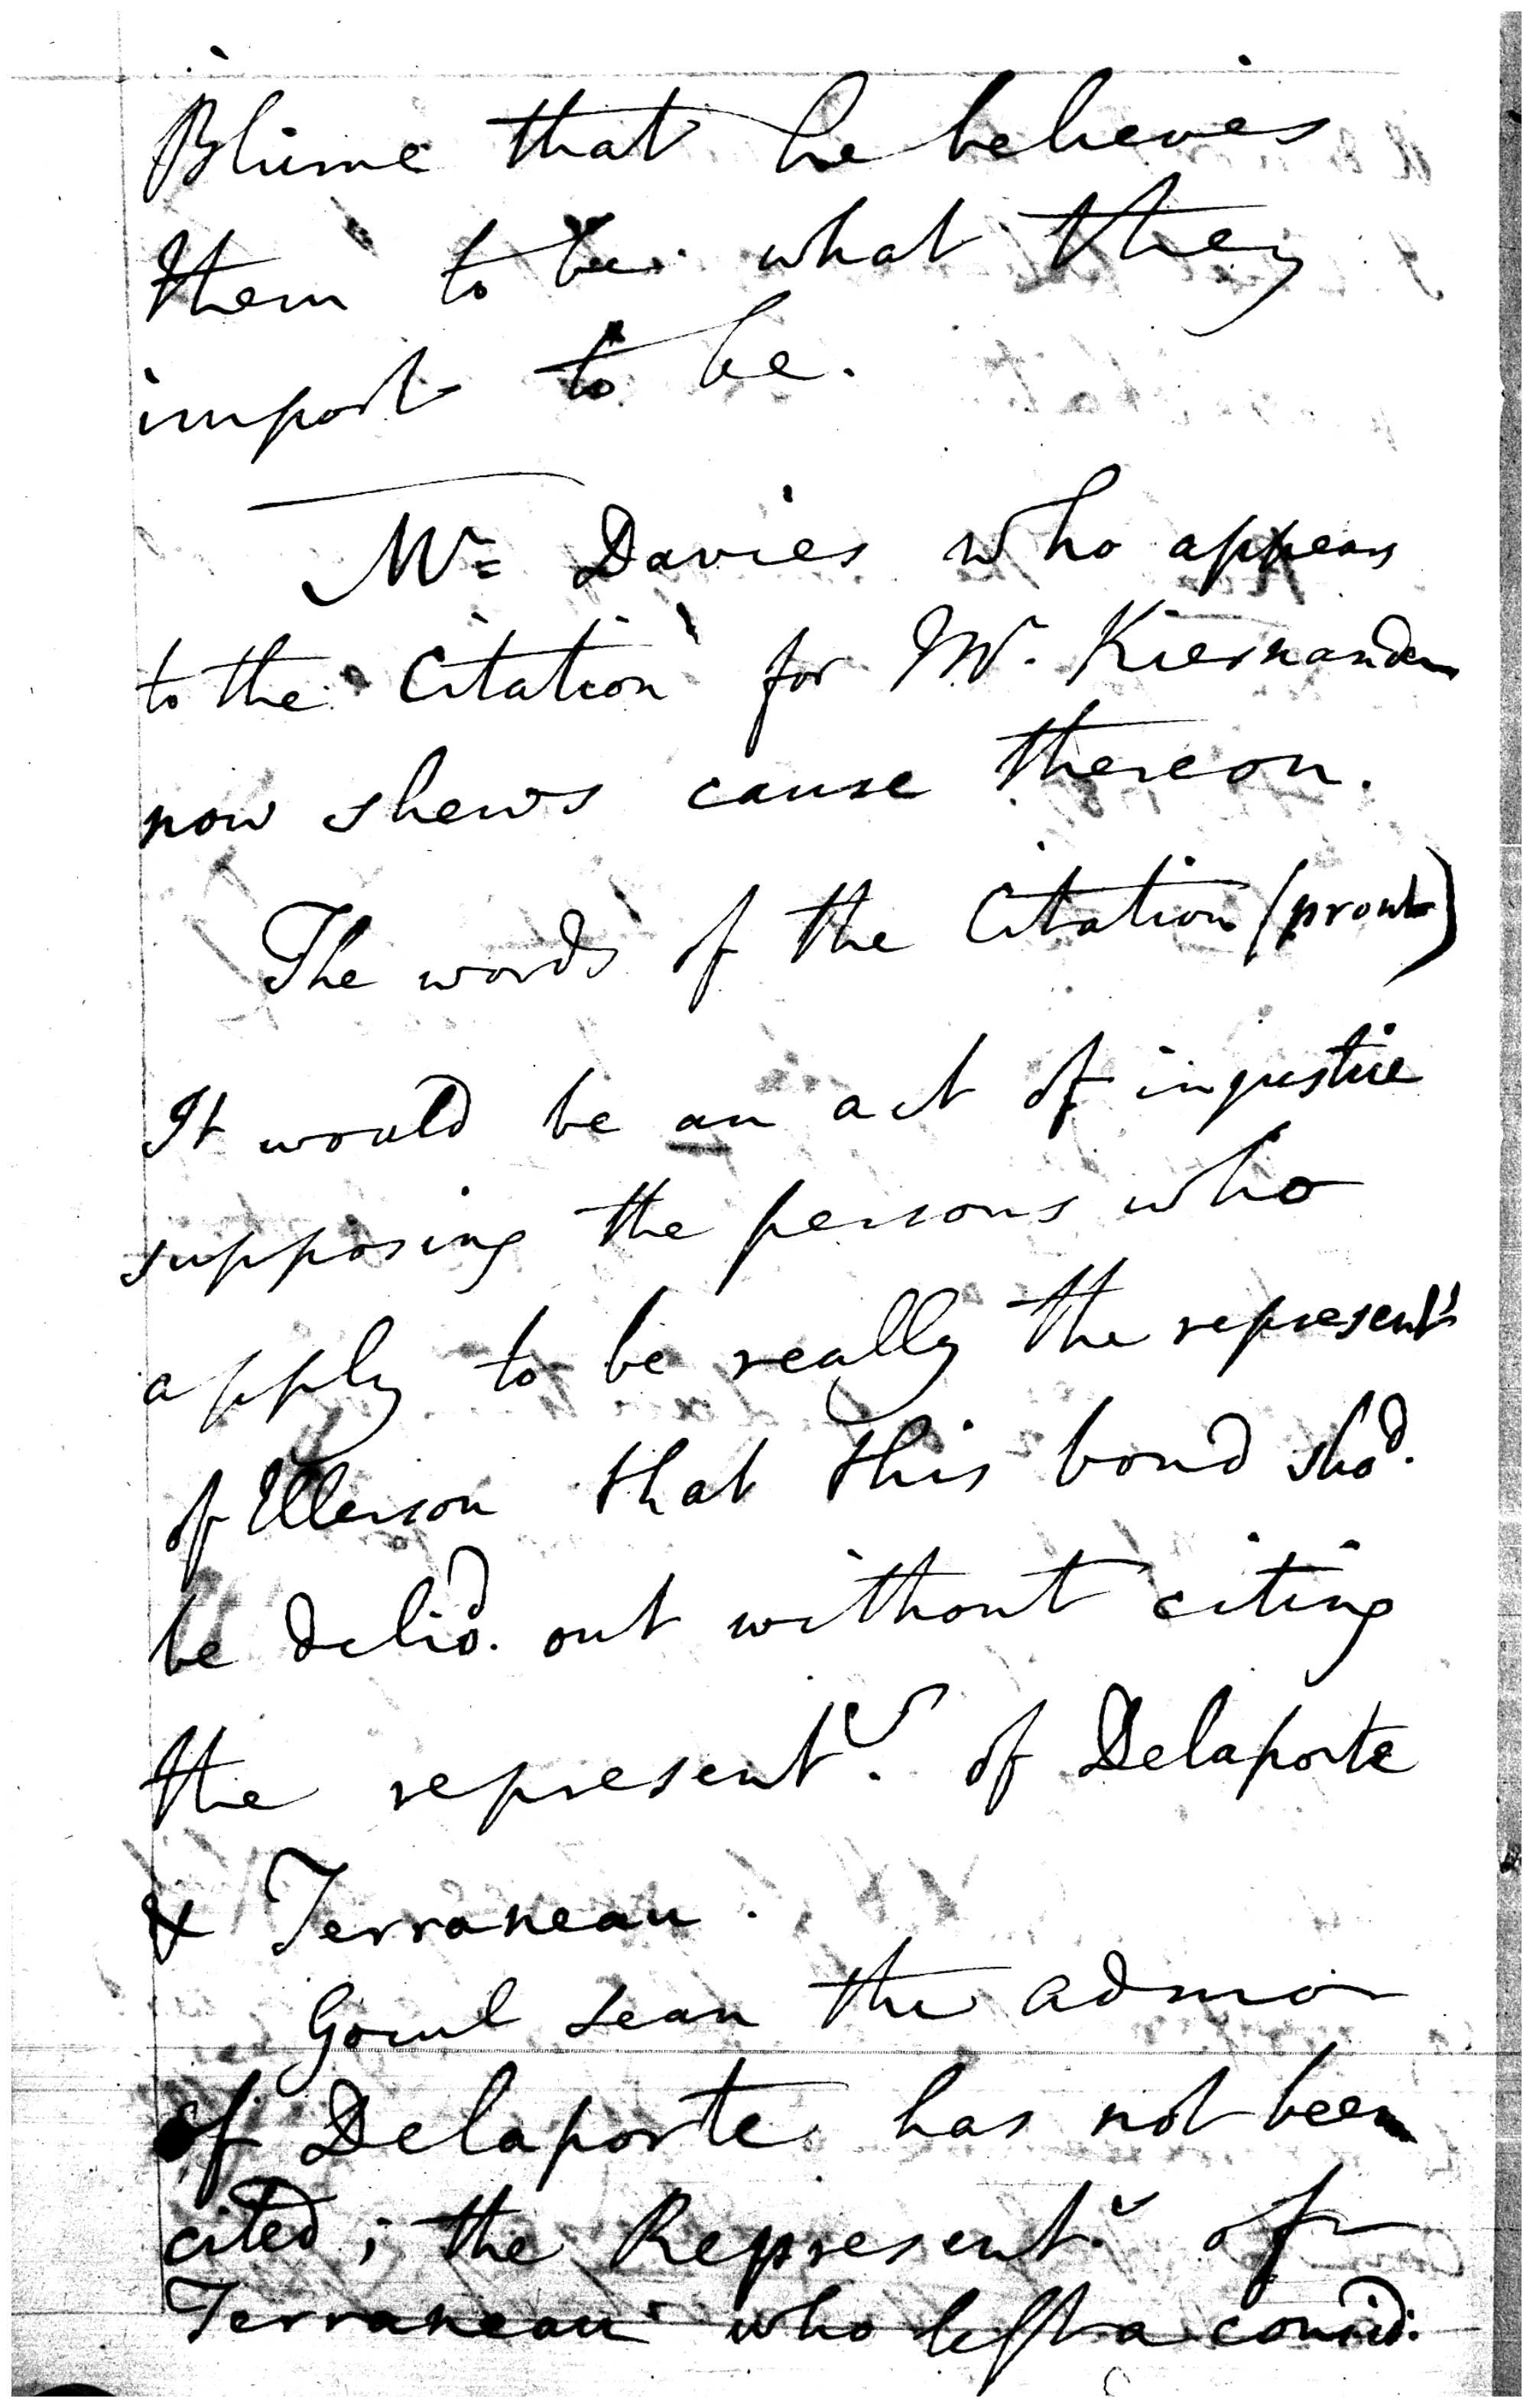 Blume that he believes
them to be what they
import to be.
Mr. Davies who appears
to the Citation for Mr. Kiernander
now shews cause thereon.
The words of the Citation (prout)
It would be an act of injustice
supposing the persons who
apply to be really the represent's
of Ellerson that this bond shod.
be delivd. out without citing
the representvs. of Delaporte
& Terraneau.
the admor
of Delaporte has not been
cited; the Representv. of
Terraneau who left a consid: